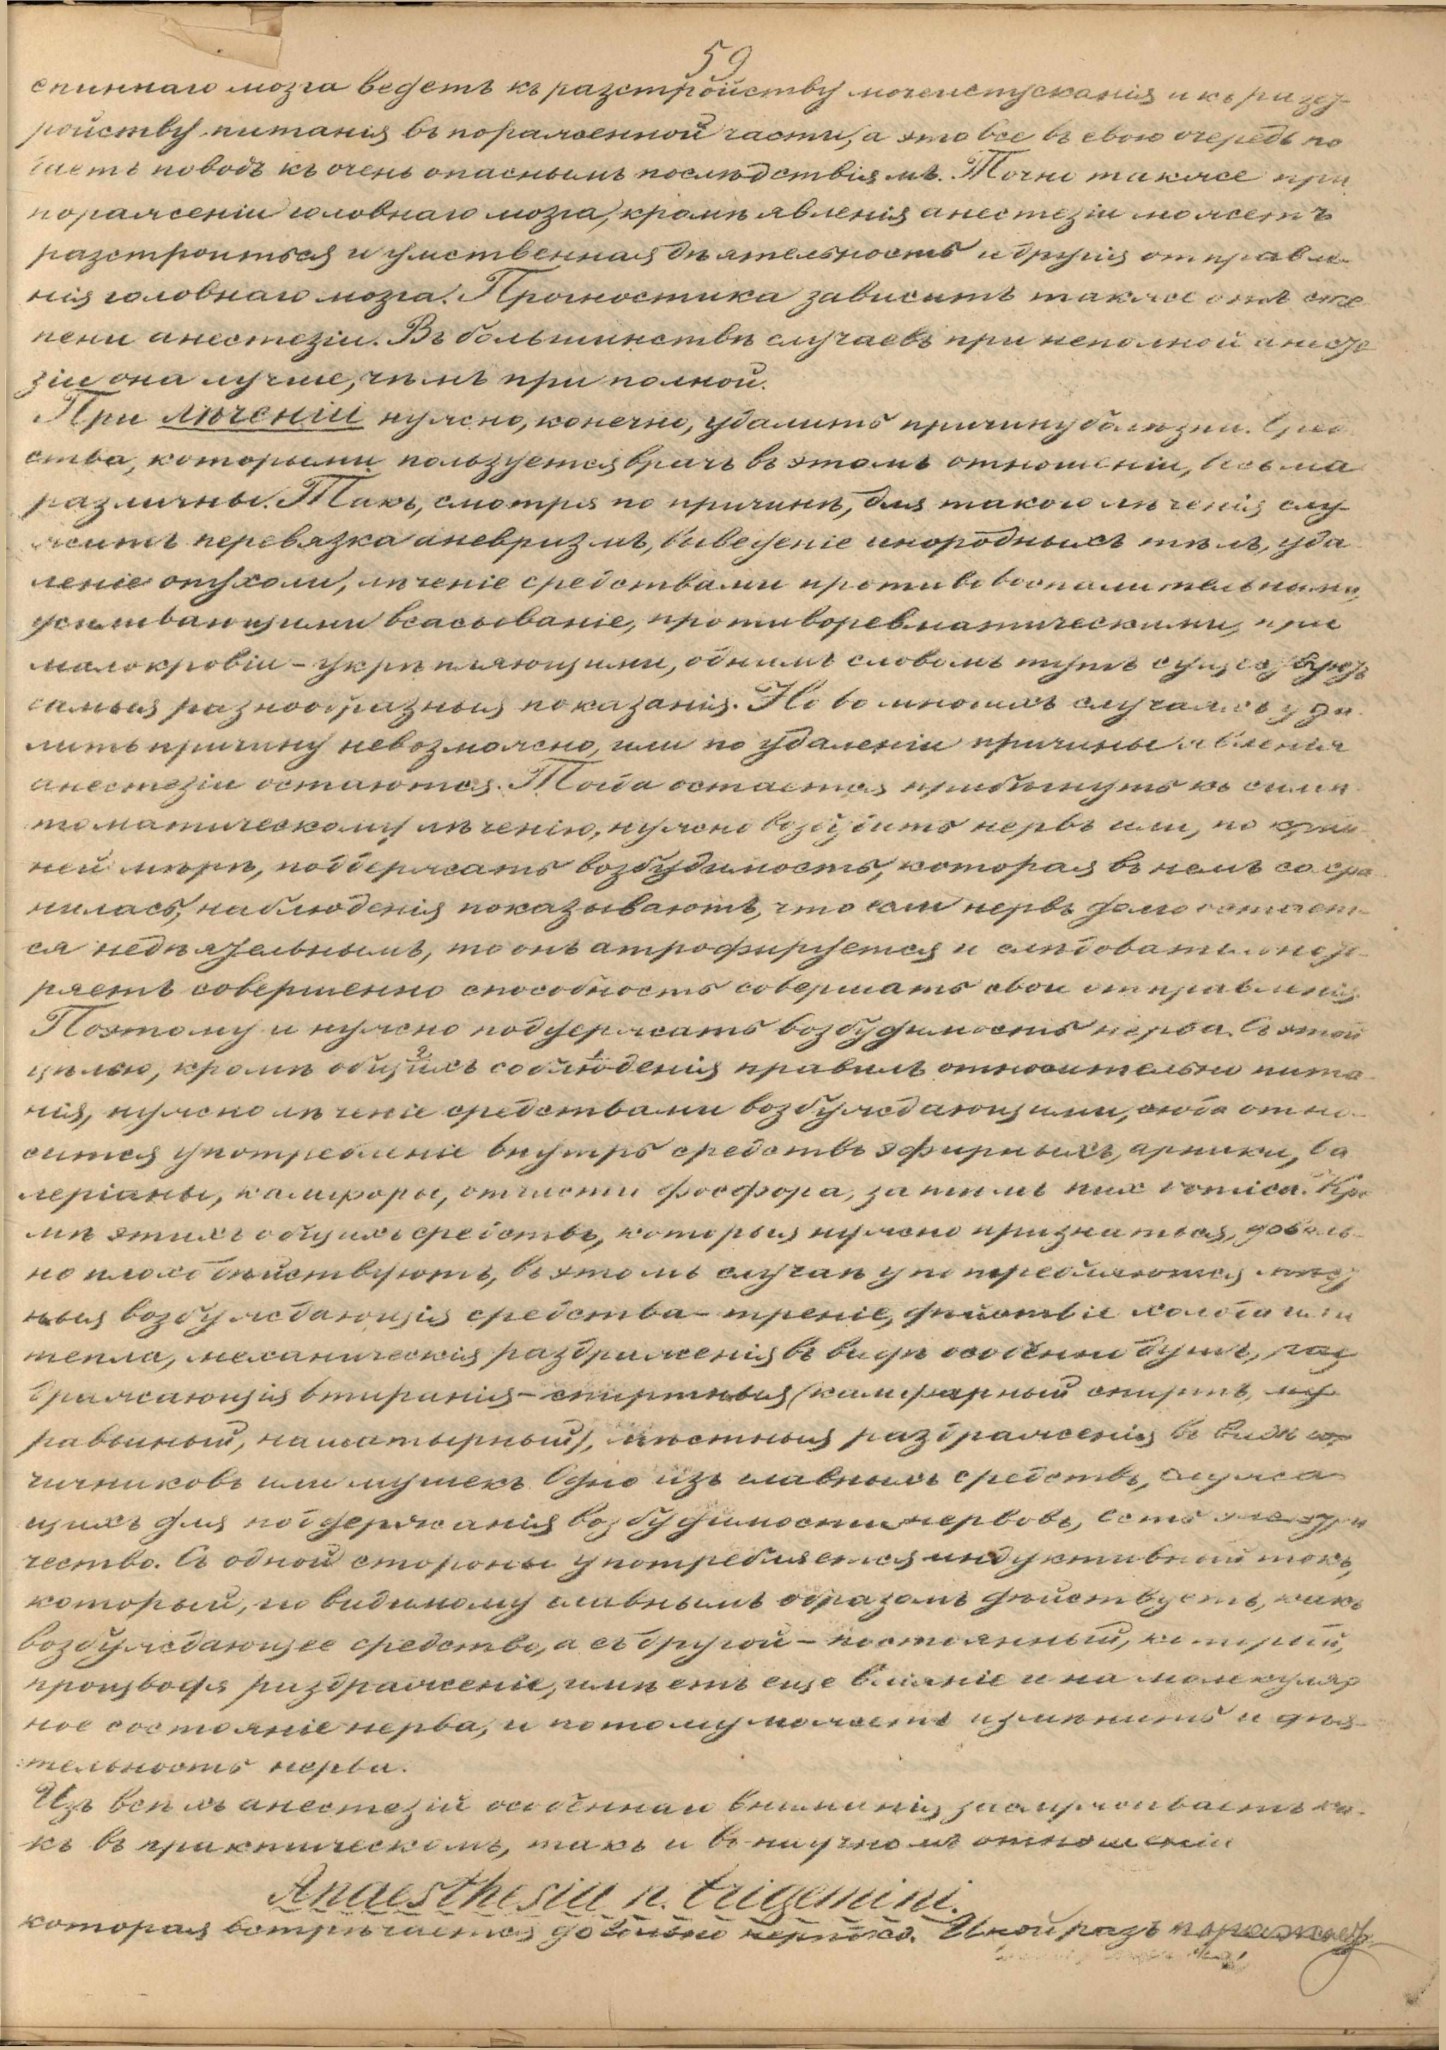 59
спиннаго мозга ведетъ къ разстройству мочеиспусканія и къ разст-
ройству питанія въ пораженной части, а это все въ свою очередь по
даетъ поводъ къ очень опаснымъ послѣдствіямъ. Точно также при
пораженіи головнаго мозга, кромѣ явленія анестезіи можетъ
разстроиться и умственная дѣятельность и другія отправле-
нія головнаго мозга. Прогностика зависитъ также отъ сте
пени анестезіи. Въ большинствѣ случаевъ при неполной анесте
зіи она лучше, чѣмъ при полной.
При лѣченіи нужно, конечно, удалить причину болѣзни. Сред
ства, которыми пользуется врачъ въ этомъ отношеніи, весьма
различны. Такъ, смотря по причинѣ, для такого лѣченія слу
житъ перевязка аневризмъ, выведеніе инородныхъ тѣлъ, уда
леніе опухоли, лѣченіе средствами противовоспалительными,
усиливающими всасываніе, противоревматическими, при
малокровіи - укрѣпляющими, однимъ словомъ тутъ
самыя разнообразныя показанія. Но во многихъ случаяхъ уда
лить причину невозможно, или по удаленіи причины явленія
анестезіи остаются. Тогда остается прибѣгнуть къ симп
томатическому лѣченію, нужно возбудить нервъ или, по край
ней мѣрѣ, поддержать возбудимость, которая въ немъ сохра
нилась, наблюденія показываютъ, что если нервъ долго остает-
ся недѣятельнымъ, то онъ атрофируется и слѣдовательно те-
ряетъ совершенно способность совершать свои отправленія.
Поэтому и нужно поддержать возбудимость нерва. Съ этой
цѣлью, кромѣ общихъ соблюденія правилъ относительно пита
нія, нужно лѣченіе средствами возбуждающими, сюда отно-
сится употребленіе внутрь средствъ эфирныхъ, арники, ва
леріаны, камфоры, отчасти фосфора, затѣмъ nux vomica. Кро
мѣ этихъ общихъ средствъ, которыя нужно признаться, доволь-
но плохо дѣйствуютъ, въ этомъ случаѣ употребляются
ныя возбуждающія средства - треніе, дѣйствіе холода или
тепла, механическія раздраженія въ видѣ особенно душъ, раз
дражающія втиранія - спиртныя (камфарный спиртъ, му
равьиный, нашатырный), мѣстныя раздраженія въ видѣ гор
чичниковъ или мушекъ. Одно изъ главныхъ средствъ, служа
щихъ для поддержанія возбудимости нервовъ, есть электри
чество. Съ одной стороны употребляется индуктивный токъ,
который, по видимому главнымъ образомъ дѣйствуетъ, какъ
возбуждающее средство, а съ другой - постоянный, который,
производя раздраженіе, имѣетъ еще вліяніе и на молекуляр
ное состояніе нерва, и потому можетъ измѣнить и дѣя-
тельность нерва.
Изъ всѣхъ анестезій особеннаго вниманія заслуживаетъ ка-
къ въ практическомъ, такъ и въ научномъ отношеніи
Anaesthesia n. trigemini.
которая встрѣчается довольно нерѣдко. Иной разъ поражает